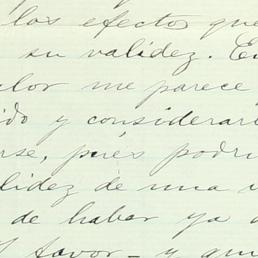 los efectos que
su validez. En
alor me parece
ido y considerar
rse, pués podri
lidez de una
de haber ya
favor – y que